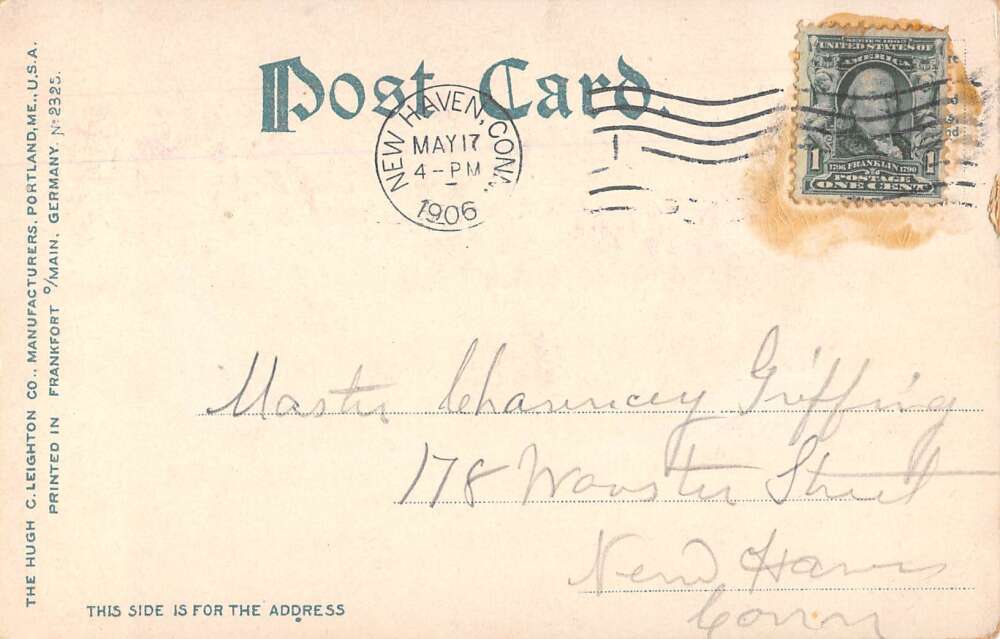 THE HUGH C. LEIGHTON CO., MANUFACTURERS, PORTLAND, ME., U.S.A.
PRINTED IN FRANKFORT o/MAIN, GERMANY. No 2325.
Post Card.
NEW HAVEN, CONN.
MAY 17
4-PM
1906
SERIES 1902
UNITED STATES OF
AMERICA
1706 FRANKLIN 1790
1 POSTAGE 1
ONE CENT
Master Chauncey Griffing
178 Wooster Street
New Haven
Conn
THIS SIDE IS FOR THE ADDRESS